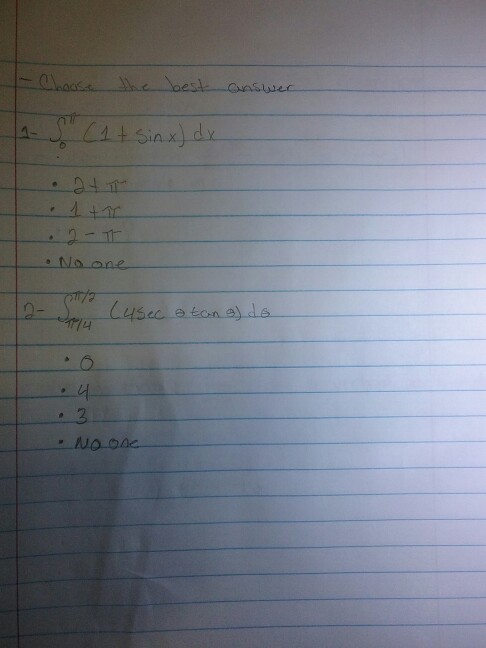 - Choose the best answer
1- ∫₀^π (1 + sin x) dx
• 2 + π
• 1 + π
• 2 - π
• No one
2- ∫_π/4^π/2 (4 sec θ tan θ) dθ
• 0
• 4
• 3
• No one